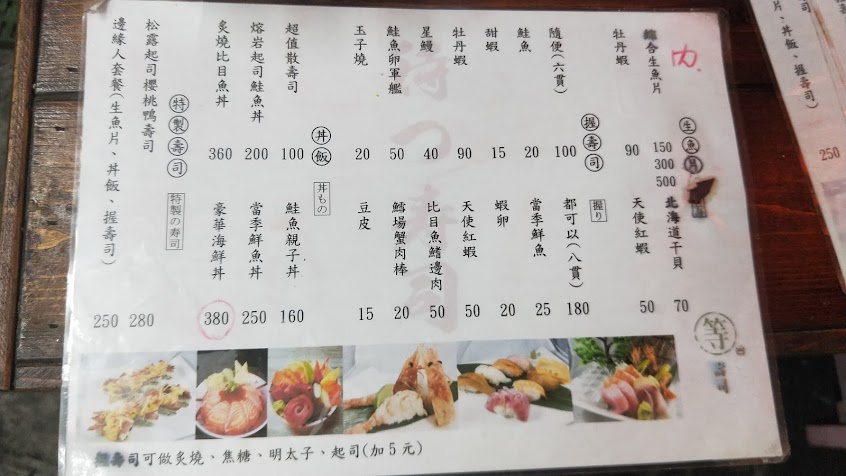 生魚片
綜合生魚片 150 300 500
北海道干貝 70
牡丹蝦 90
天使紅蝦 50
握壽司
握り
隨便(六貫) 100
都可以(八貫) 180
鮭魚 20
當季鮮魚 25
甜蝦 15
蝦卵 20
牡丹蝦 90
天使紅蝦 50
星鰻 40
比目魚鰭邊肉 50
鮭魚卵軍艦 50
鱈場蟹肉棒 20
玉子燒 20
豆皮 15
丼飯
丼もの
超值散壽司 100
鮭魚親子丼 160
熔岩起司鮭魚丼 200
當季鮮魚丼 250
炙燒比目魚丼 360
豪華海鮮丼 380
特製壽司
特製の寿司
松露起司櫻桃鴨壽司 280
邊緣人套餐(生魚片、丼飯、握壽司) 250
待つ寿司
等
壽司
壽司可做炙燒、焦糖、明太子、起司(加5元)
片、丼飯、握壽司)
250